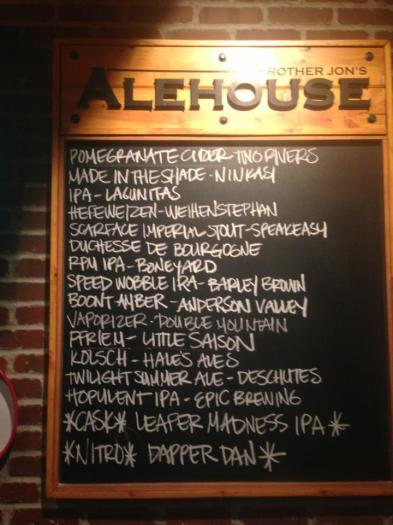 BROTHER JON'S
ALEHOUSE
POMEGRANATE CIDER - TWO RIVERS
MADE IN THE SHADE - NINKASI
IPA - LAGUNITAS
HEFEWEIZEN - WEIHENSTEPHAN
SCARFACE IMPERIAL STOUT - SPEAKEASY
DUCHESSE DE BOURGOGNE
RPM IPA - BONEYARD
SPEED WOBBLE IRA - BARLEY BROWN
BOONT AMBER - ANDERSON VALLEY
VAPORIZER - DOUBLE MOUNTAIN
PFRIEM - LITTLE SAISON
KOLSCH - HALE'S ALES
TWILIGHT SUMMER ALE - DESCHUTES
HOPULENT IPA - EPIC BREWING
*CASK* LEAFER MADNESS IPA *
*NITRO* DAPPER DAN *